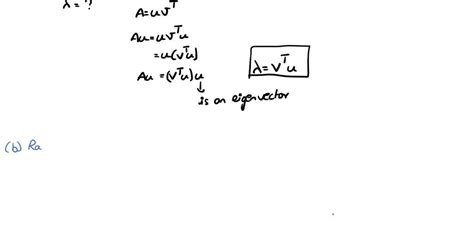 λ = ?
A = uvᵀ
Au = uvᵀu
= u(vᵀu)
Au = (vᵀu)u
λ = vᵀu
↓
is an eigenvector
(b) Ra